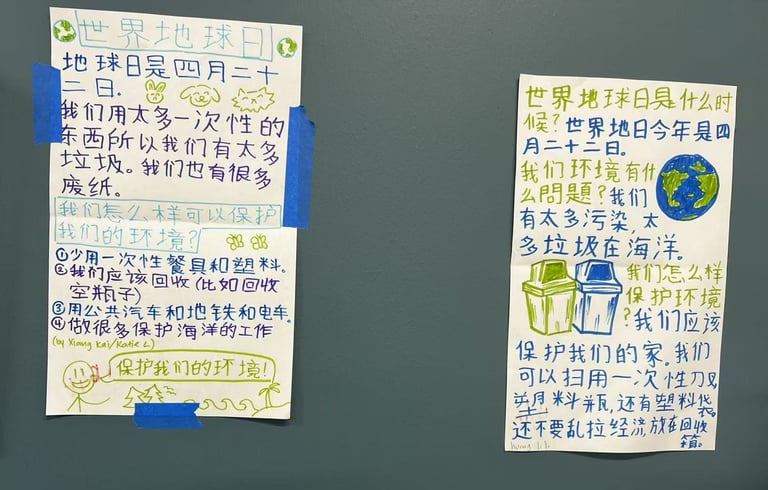 世界地球日
地球日是四月二十
二日.
我们用太多一次性的
东西所以我们有太多
垃圾。我们也有很多
废纸。
我们怎么样可以保护
我们的环境?
①少用一次性餐具和塑料。
②我们应该回收(比如回收
空瓶子)
③用公共汽车和地铁和电车.
④做很多保护海洋的工作
(by Xiong Kai/Katie L)
保护我们的环境!
世界地球日是什么时
候?世界地日今年是四
月二十二日。
我们环境有什
么問題?我们
有太多污染,太
多垃圾在海洋。
我们怎么样
保护环境
?我们应该
保护我们的家。我们
可以扫用一次性刀叉
塑料瓶,还有塑料袋。
还不要乱拉经济,放在回收
箱。